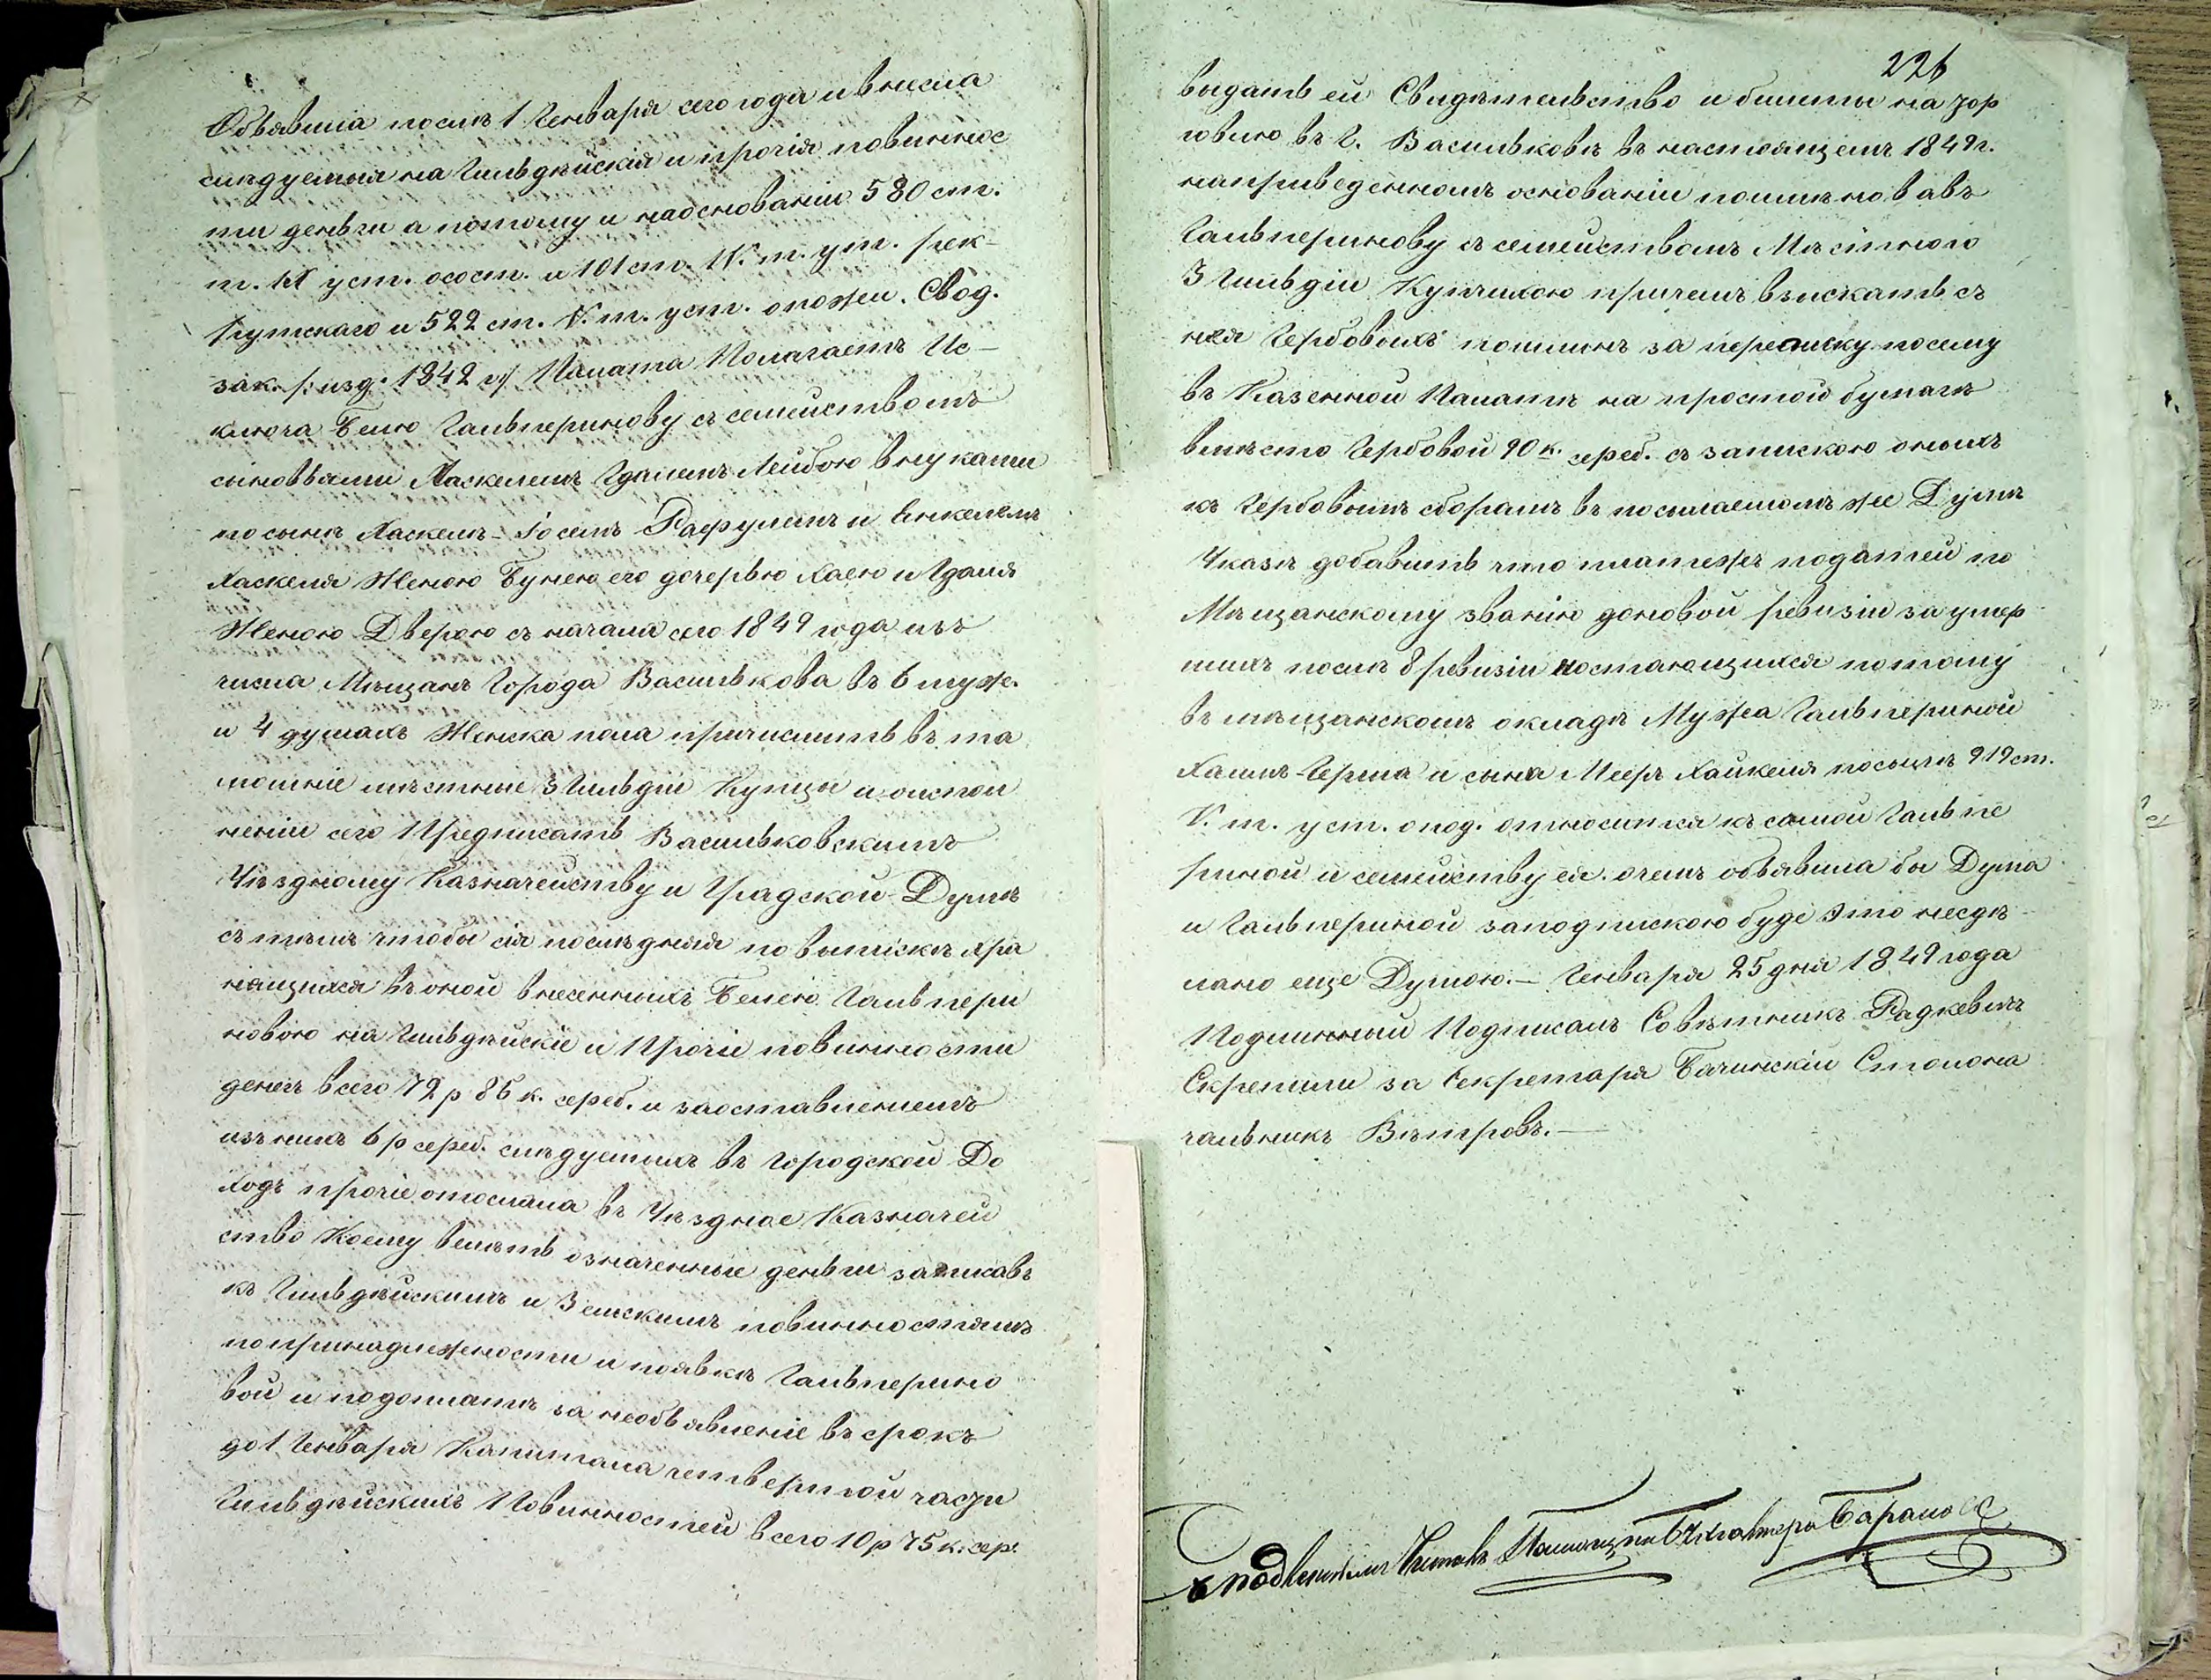 Объявила послѣ 1 Генваря сего года и внесла
слѣдуемыя на Гильдѣйскія и прочія повиннос
ти деньги а потому и наоснованіи 580 ст.
т. IX уст. осост. и 101 ст. IV. т. уст. рек-
рутскаго и 522 ст. V. т. уст. опожел. Свод.
зак. /: изд. 1842 г:/ Палата Полагаетъ Ис-
ключа Бейлю Гальперинову съ семействомъ
сыновьями Хаскелемъ Гдалемъ Лейбою внуками
по сынѣ Хаскелѣ-Іосемъ Рафулемъ и Янкелемъ
Хаскеля Женою Бунею его дочерью Хаею и Гдаля
Женою Дверою съ начала сего 1849 года изъ
числа Мѣщанъ Города Василькова въ 6 муж.
и 4 душахъ Женска пола причислить въ та
мошніе мѣстные 3 Гильдіи Купцы и оиспол
неніи сего Предписать Васильковскимъ
Уѣздному Казначейству и Градской Думѣ
съ тѣмъ чтобы сія послѣдняя по выпискѣ хра
нящихся въ оной внесенныхъ Бейлею Гальпери
новою на Гильдѣйскіе и Прочіе повинности
денегъ всего 72 р 86 к. сереб. и заоставленіемъ
изъ нихъ 6 р сереб. слѣдуемыхъ въ Городской До
ходъ прочіе отослала въ Уѣздное Казначей
ство Коему велѣть означенные деньги записавъ
къ Гильдѣйскимъ и Земскимъ повинностямъ
по принадлежности и появкѣ Гальперино
вой и подоплатѣ за необъявленіе въ срокъ
до 1 Генваря Капитала четвертой части
Гильдѣйскихъ Повинностей всего 10 р 75 к. сер.
226
выдать ей Свидѣтельство и билеты на тор
говлю въ Г. Васильковѣ въ настоящемъ 1849 г.
наприведенномъ основаніи поименовавъ
Гальперинову съ семействомъ Мѣстною
3 Гильдіи Купчихою причемъ взыскать съ
нея Гербовыхъ пошлинъ за переписку посему
въ Казенной Палатѣ на простой бумагѣ
вмѣсто Гербовой 90 к. сереб. съ запискою оныхъ
къ Гербовымъ сборамъ въ посылаемомъ же Думѣ
Указѣ добавить что платежъ податей по
Мѣщанскому званію доновой ревизіи за умер
шихъ послѣ 8 ревизіи остающихся потому
въ мѣщанскомъ окладѣ Мужа Гальпериной
Хаимъ-Герша и сына Мееръ Хайкеля посилѣ 919 ст.
V. т. уст. опод. относится къ самой Гальпе
риной и семейству ея. очемъ объявила бы Дума
и Гальпериной заподпискою буде это несдѣ
лано еще Думою.— Генваря 25 дня 1849 года
Подлинный Подписалъ Совѣтникъ Радкевичъ
Скрепили за Секретаря Бачинскій Столона
чальникъ Вѣтровъ.—